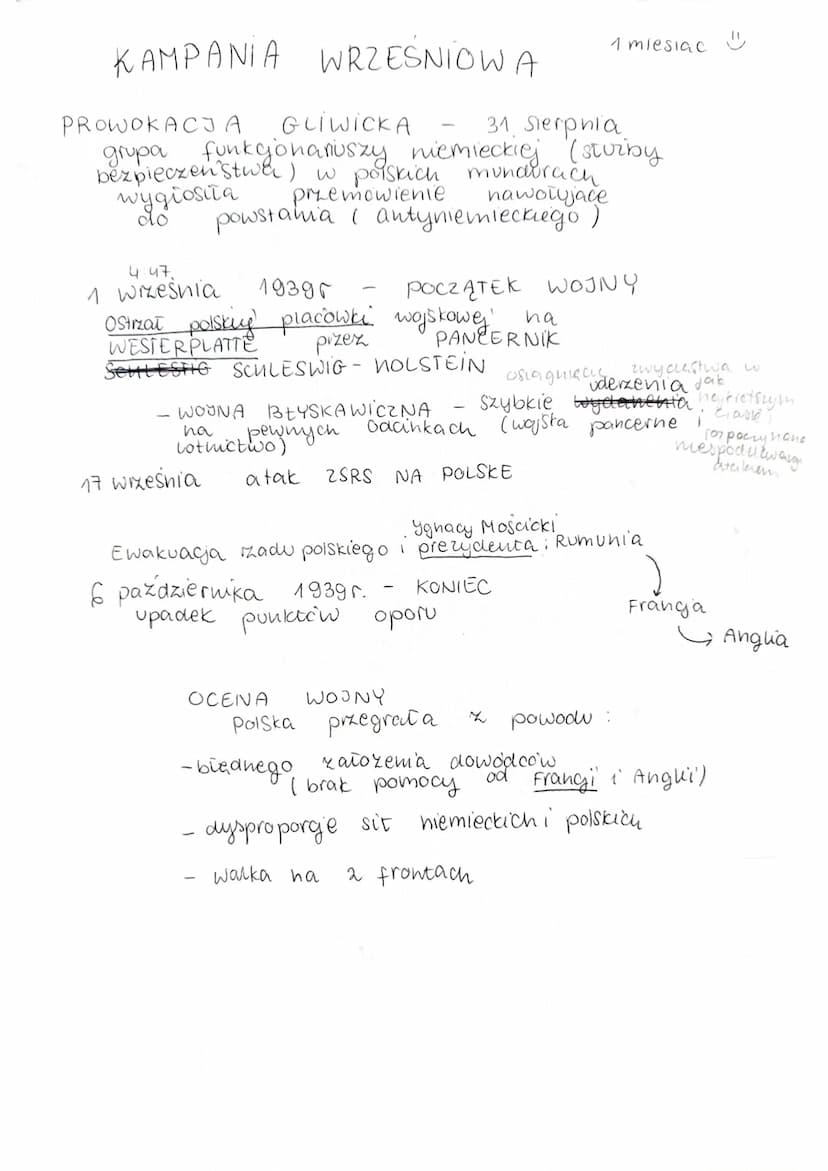 KAMPANIA WRZEŚNIOWA
1 miesiąc
PROWOKACJA GLIWICKA – 31 sierpnia
grupa funkcjonariuszy niemieckiej (służby
bezpieczeństwa) w polskich mundurach
wygłosiła przemówienie nawołujące
do powstania (antyniemieckiego)
4 47
1 września 1939r – POCZĄTEK WOJNY
Ostrzał polskiej placówki wojskowej na
WESTERPLATTE przez PANCERNIK
SCHLESWIG-HOLSTEIN
osiągnięcie zwycięstwa w
jak
najkrótszym
czasie
rozpoczynane
niespodziewanym
atakiem
– WOJNA BŁYSKAWICZNA – szybkie uderzenia
na pewnych odcinkach (wojska pancerne i
lotnictwo)
17 września atak ZSRS NA POLSKĘ
Ygnacy Mościcki
Ewakuacja rządu polskiego i prezydenta: Rumunia
Francja
Anglia
6 października 1939r. – KONIEC
upadek punktów oporu
OCENA WOJNY
Polska przegrała z powodu :
– błędnego założenia dowódców
(brak pomocy od Francji i Anglii)
– dysproporcje sił niemieckich i polskich
– walka na 2 frontach